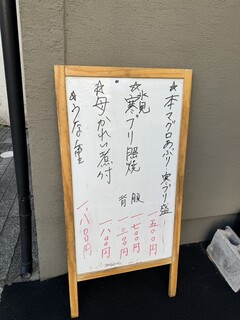 ☆本マグロあぶり 寒ブリ盛
一五〇〇円
☆氷見寒ブリ 照焼
腹 一七〇〇円
背 一三〇〇円
☆母かれい煮付
一八〇〇円
☆うな重
一八〇〇円